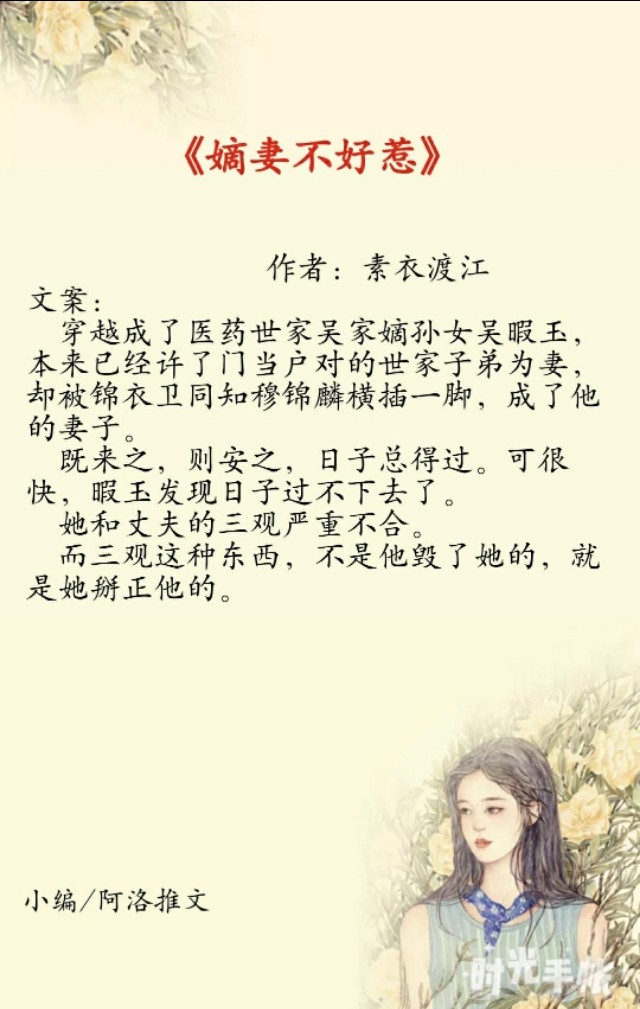 《嫡妻不好惹》
作者：素衣渡江
文案：
穿越成了医药世家吴家嫡孙女吴暇玉，
本来已经许了门当户对的世家子弟为妻，
却被锦衣卫同知穆锦麟横插一脚，成了他
的妻子。
既来之，则安之，日子总得过。可很
快，暇玉发现日子过不下去了。
她和丈夫的三观严重不合。
而三观这种东西，不是他毁了她的，就
是她掰正他的。
小编/阿洛推文
时光手帐